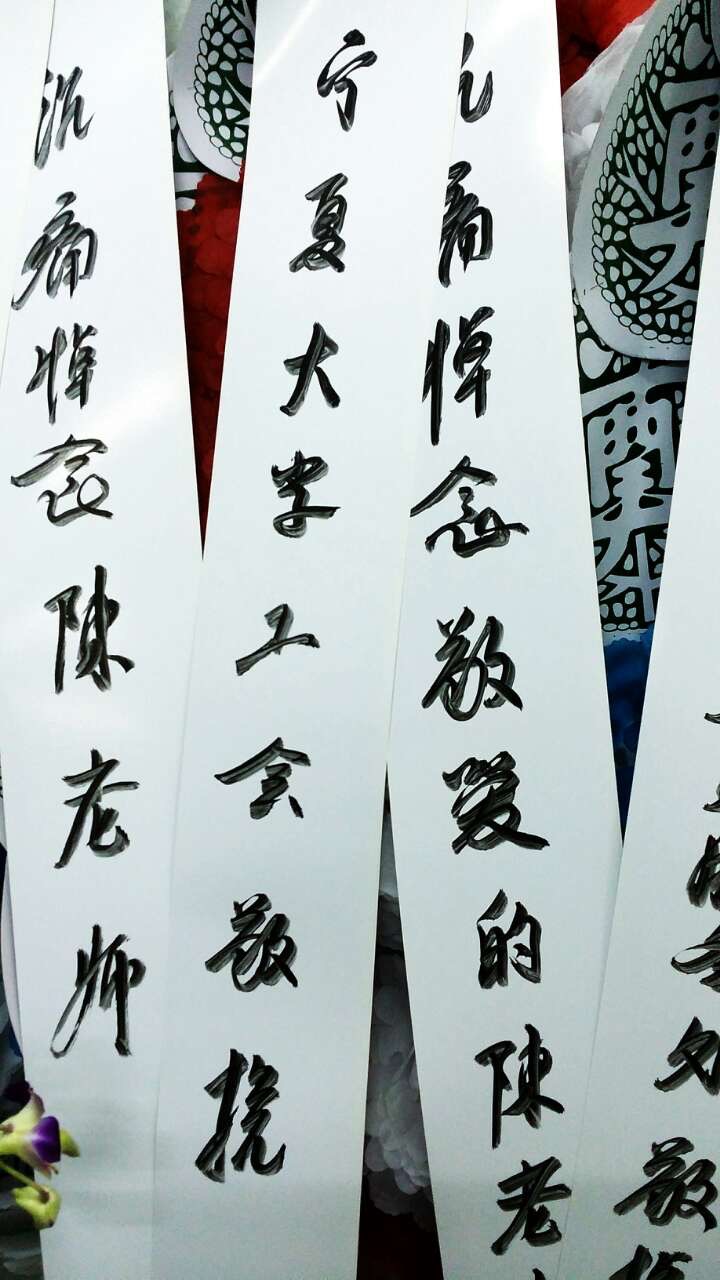 沉痛悼念陳老师
宁夏大学工会敬挽
沉痛悼念敬爱的陳老
敬挽